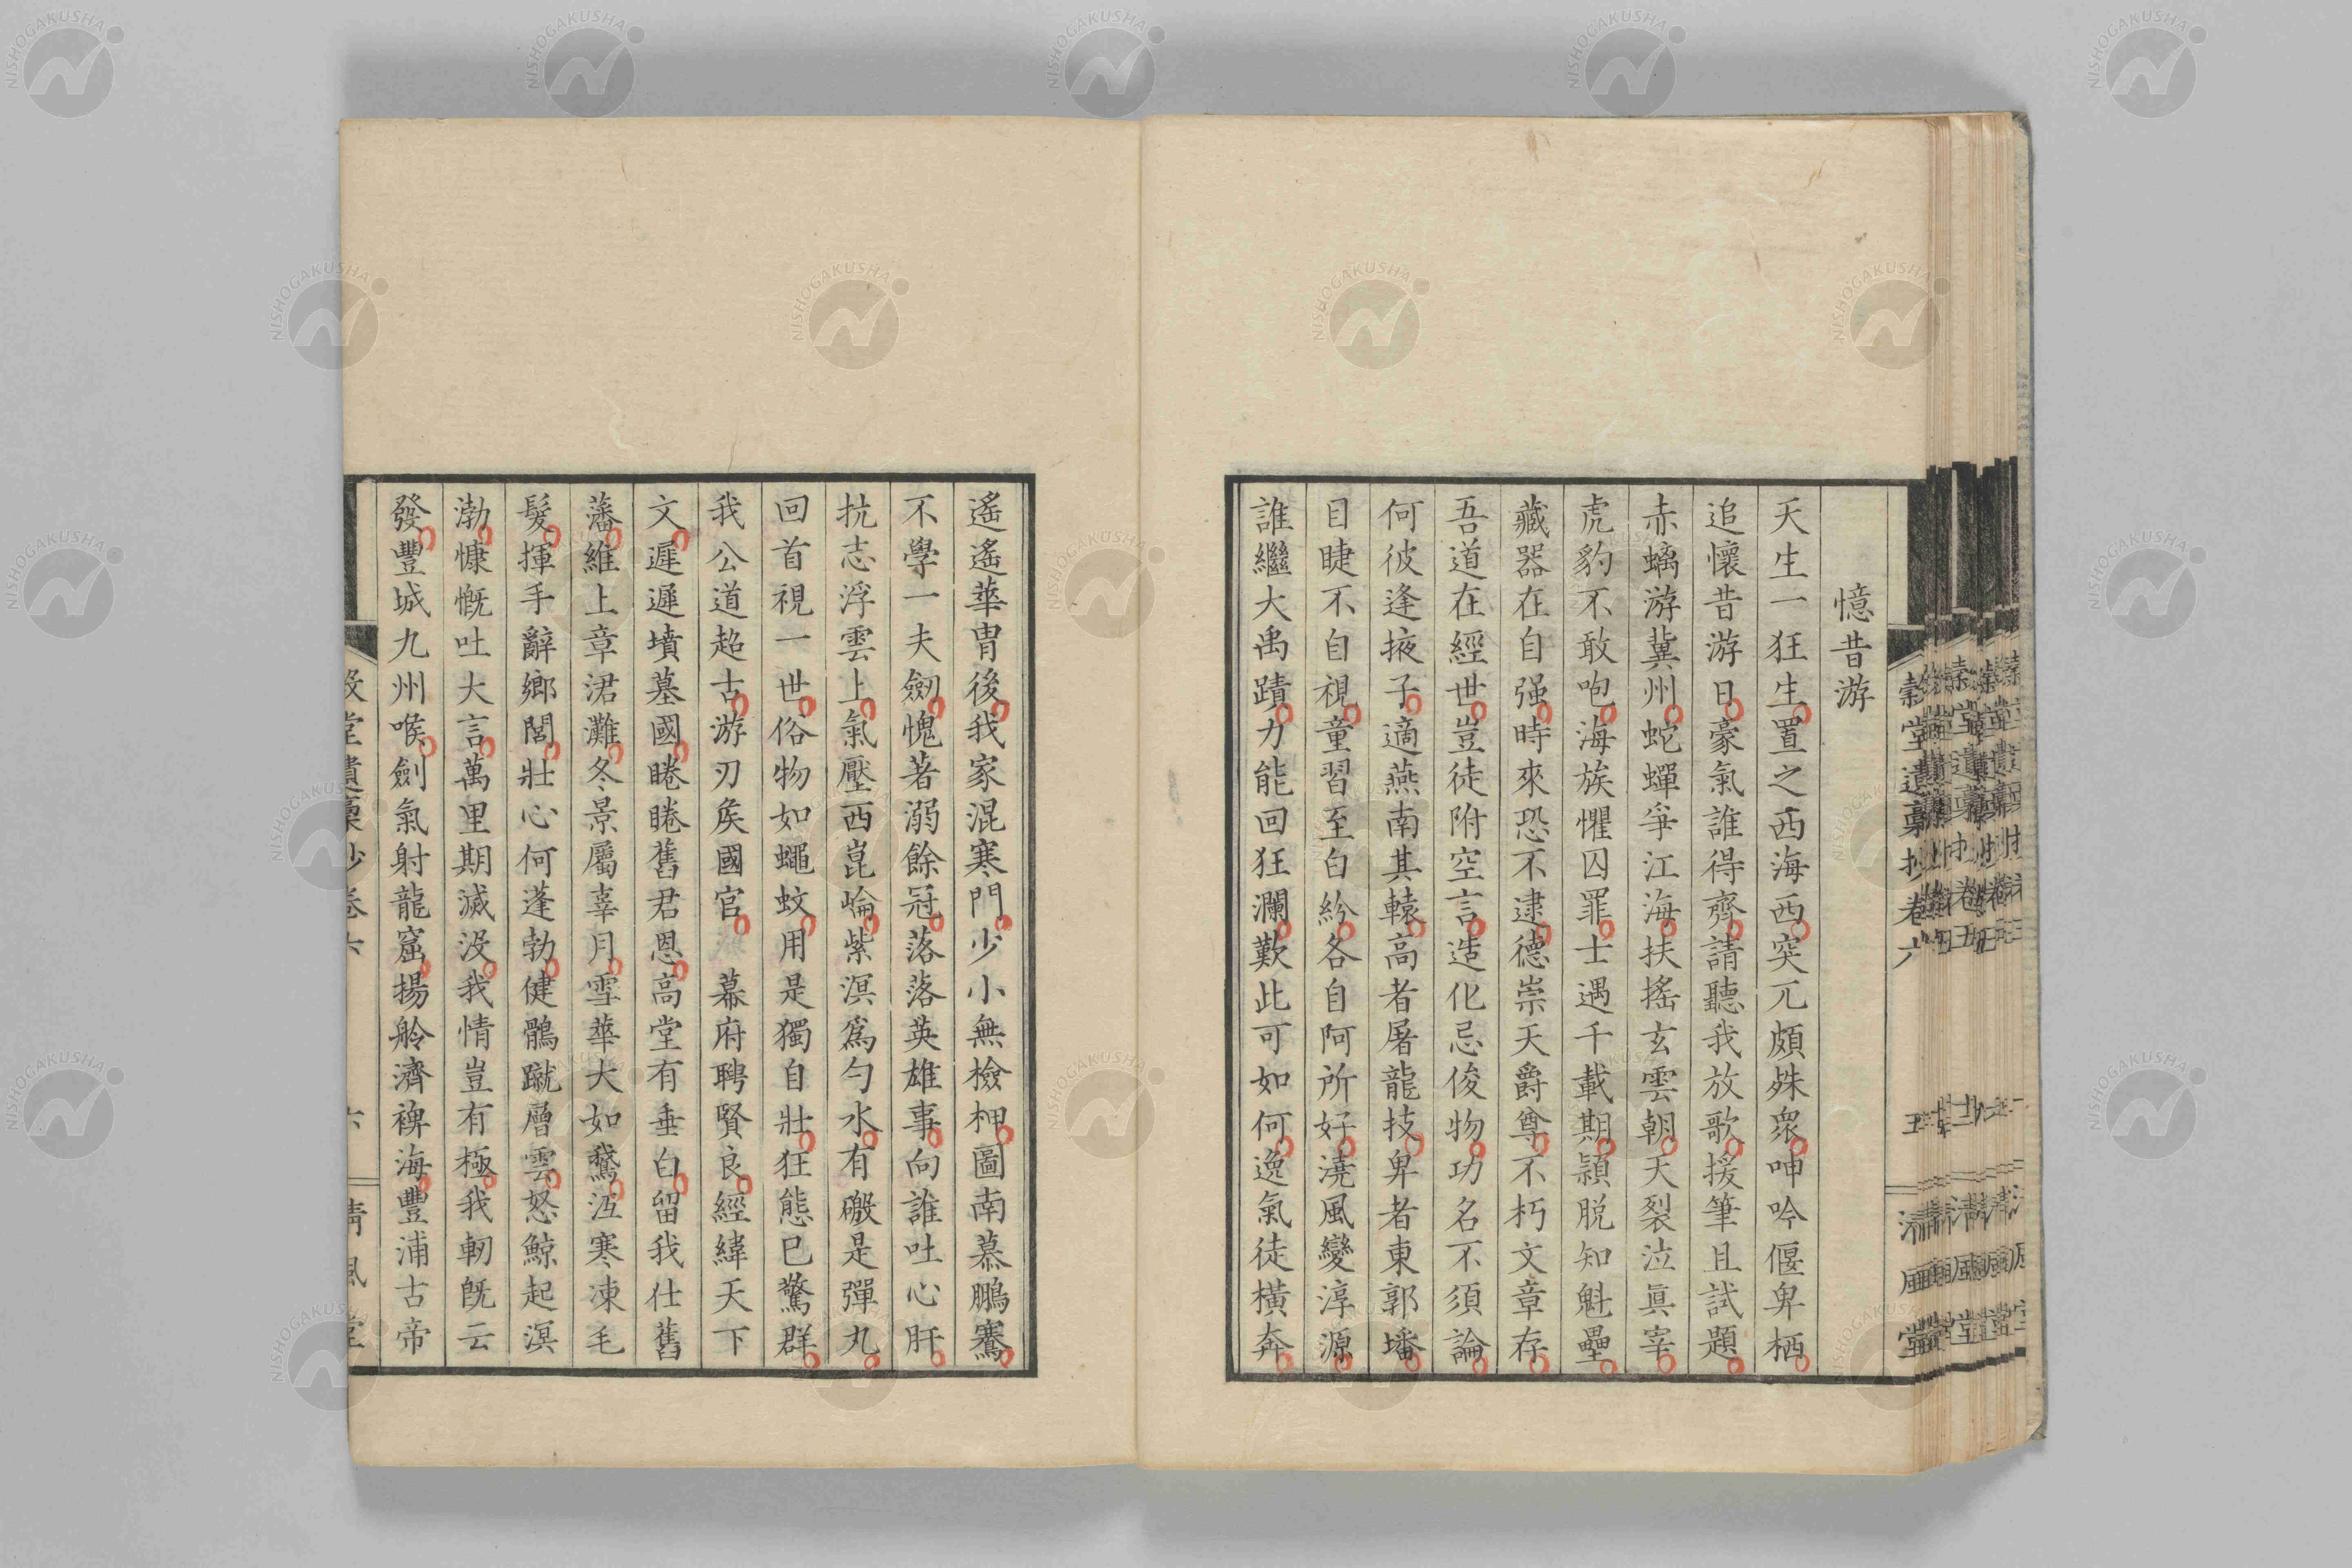 憶昔游
天生一狂生置之西海西突兀頗殊衆呻吟偃卑栖
追懷昔游日豪氣誰得齊請聽我放歌援筆且試題
赤螭游冀州蛇蟬爭江海扶搖玄雲朝天裂泣眞宰
虎豹不敢咆海族懼囚罪士遇千載期穎脱知魁壘
藏器在自强時來恐不逮德崇天爵尊不朽文章存
吾道在經世豈徒附空言造化忌俊物功名不須論
何彼逢掖子適燕南其轅高者屠龍技卑者東郭墦
目睫不自視童習至白紛各自阿所好澆風變淳源
誰繼大禹蹟力能回狂瀾歎此可如何逸氣徒橫奔
穀堂遺稾抄卷六
五
清風堂
遙遙華冑後我家混寒門少小無檢柙圖南慕鵬騫
不學一夫劒愧著溺餘冠落落英雄事向誰吐心肝
抗志浮雲上氣壓西崑崘紫溟爲勺水有礟是彈丸
回首視一世俗物如蠅蚊用是獨自壯狂態已驚群
我公道超古游刃矦國官 幕府聘賢良經緯天下
文遲遲墳墓國睠睠舊君恩高堂有垂白留我仕舊
藩維上章涒灘冬景屬辜月雪華大如鵞沍寒凍毛
髮揮手辭鄉閭壯心何蓬勃健鶻蹴層雲怒鯨起溟
渤慷慨吐大言萬里期滅没我情豈有極我軔旣云
發豐城九州喉劍氣射龍窟揚舲濟裨海豐浦古帝
穀堂遺稾抄卷六
六
清風堂